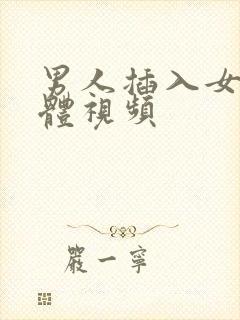 男人插入女
體視頻
嚴一寧